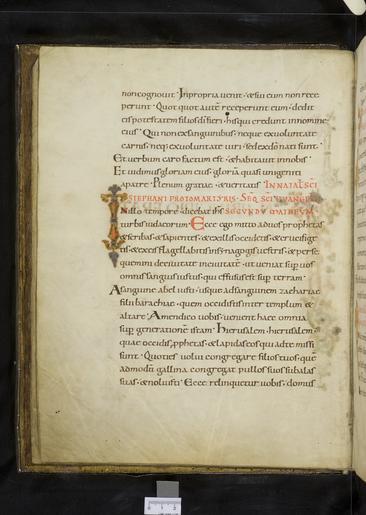 non cognovit · In propria venit · & sui eum non rece
perunt · Quot quot aute receperunt eum · dedit
eis potestate filios di fieri · his qui credunt in nomine
eius · Qui non ex sanguinibus · neque ex voluntate
carnis · neq; ex voluntate viri · sed ex do nati sunt ·
Et verbum caro factum est · & habitavit in nobis ·
Et vidimus gloriam eius · gloria quasi unigeniti
a patre · Plenum gratiae · & veritatis · IN NATAL SCI
STEPHANI PROTOMARTYRIS · SEQ SCI EVANGEL
In illo tempore · dicebat ihs SECUNDU MATHEUM
turbis iudaeorum · Ecce ego mitto ad vos prophetas
& scribas · & sapientes · & ex illis occidetis · & crucifige
tis · & ex eis flagellabitis in synagogis vestris · & perse
quemini de civitate in civitate · ut veniat sup vos
omnis sanguis iustus · qui effusus est sup terram ·
A sanguine abel iusti · usque ad sanguinem zachariae
filii barachiae · quem occidistis inter templum &
altare · Amen dico vobis · venient haec omnia
sup generatione istam · Hierusalem · hierusalem ·
quae occidis pphetas · & lapidas eos qui ad te missi
sunt · Quoties volui congregare filios tuos · que
admodu gallina congregat pullos suos sub alas
suas · & noluisti · Ecce relinquetur vobis · domus